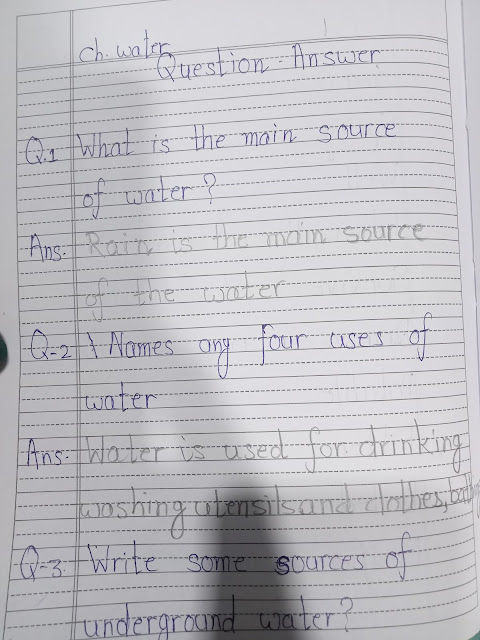 ch. water
Question - Answer
Q.1 What is the main source
of water?
Ans. Rain is the main source
of the water
Q-2 } Names any four uses of
water
Ans. Water is used for drinking
washing utensils and clothes,
Q-3. Write some sources of
underground water?